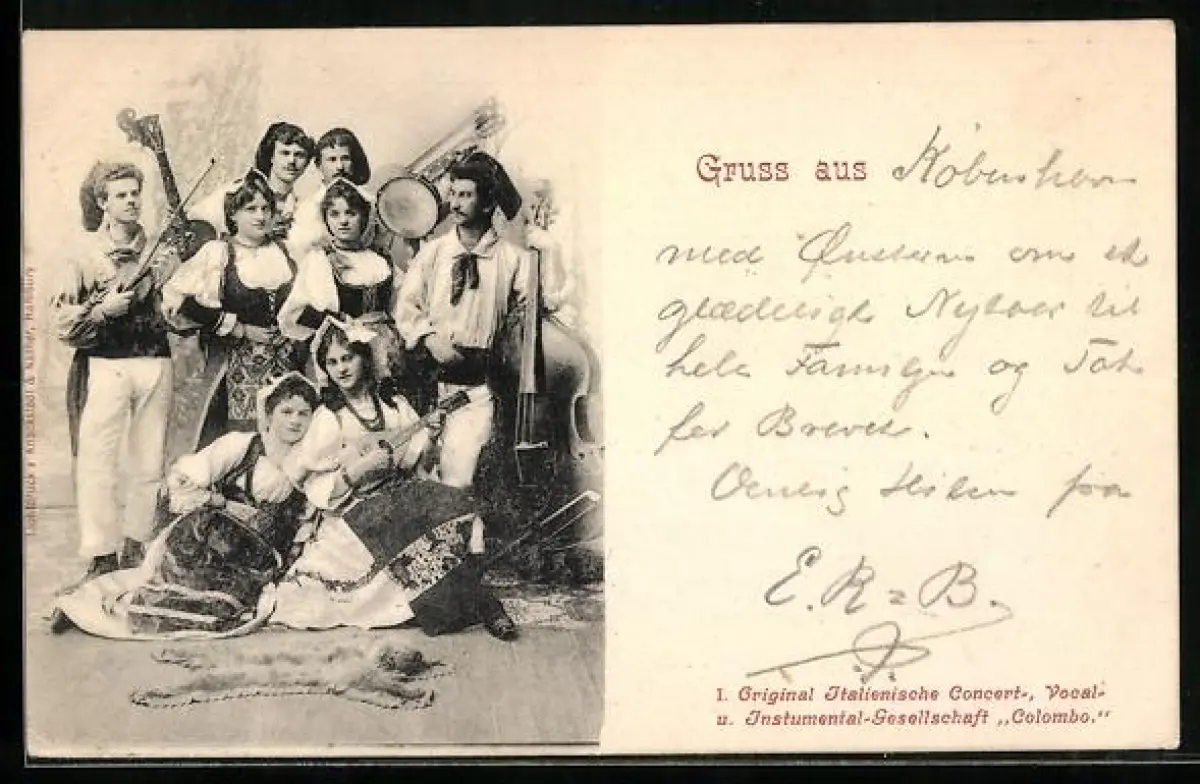 Gruss aus Kobenhavn
med Ønsket om et
glædeligt Nytaar til
hele Familjen og Tak
for Brevet.
Venlig Hilsen fra
E. R = B.
I. Original Italienische Concert-, Vocal-
u. Instumental-Gesellschaft „Colombo."
Lichtdruck v Knackstedt & Näther, Hamburg